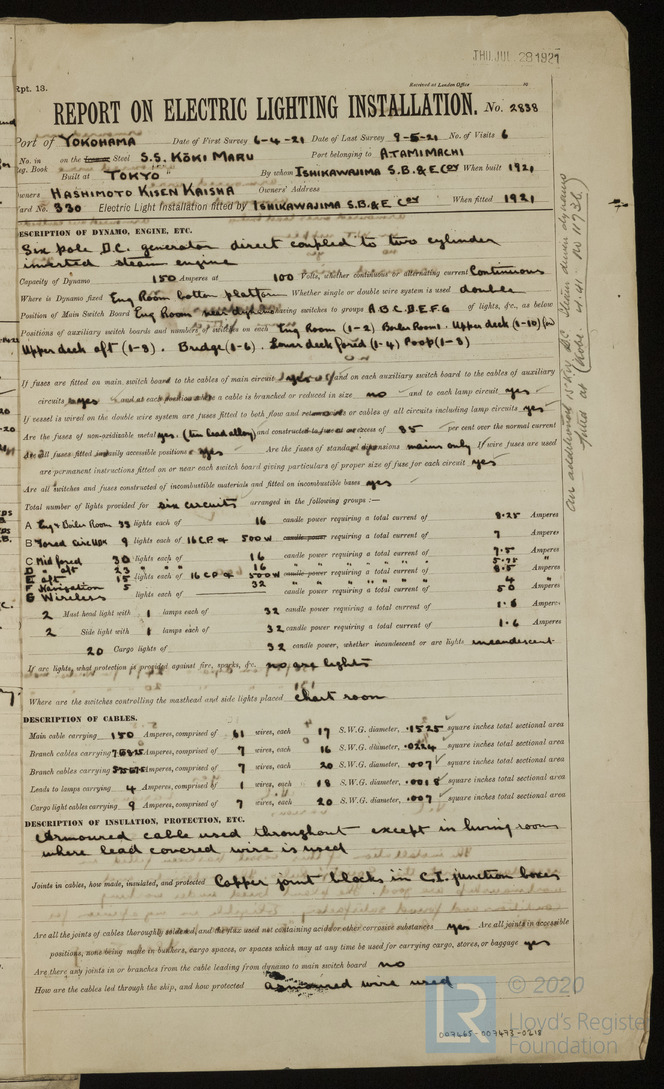 THU. JUL. 28 1921
Rpt. 13.
Received at London Office
REPORT ON ELECTRIC LIGHTING INSTALLATION. No. 2838
Port of YOKOHAMA Date of First Survey 6-4-21 Date of Last Survey 9-5-21 No. of Visits 6
No. in on the Iron or Steel S.S. KŌKI MARU Port belonging to ATAMIMACHI
Reg. Book Built at TOKYO By whom ISHIKAWAJIMA S.B. & E Coy When built 1921
Owners HASHIMOTO KISEN KAISHA Owners' Address
Yard No. 330 Electric Light Installation fitted by ISHIKAWAJIMA S.B.&E Coy When fitted 1921
DESCRIPTION OF DYNAMO, ENGINE, ETC.
Six pole D.C. generator direct coupled to two cylinder
inverted steam engine
Capacity of Dynamo 150 Amperes at 100 Volts, whether continuous or alternating current Continuous
Where is Dynamo fixed Eng Room bottom platform Whether single or double wire system is used double
Position of Main Switch Board Eng Room near dynamo having switches to groups A B C D E F G of lights, &c., as below
Positions of auxiliary switch boards and numbers of switches on each Eng Room (1-2) Boiler Room 1. Upper deck (1-10) for
Upper deck aft (1-8). Bridge (1-6). Lower deck forwd (1-4) Poop (1-8)
If fuses are fitted on main switch board to the cables of main circuit yes and on each auxiliary switch board to the cables of auxiliary
circuits yes and at each position where a cable is branched or reduced in size no and to each lamp circuit yes
If vessel is wired on the double wire system are fuses fitted to both flow and return wires or cables of all circuits including lamp circuits yes
Are the fuses of non-oxidizable metal yes. (tin lead alloy) and constructed to fuse at an excess of 85 per cent over the normal current
Are all fuses fitted in easily accessible positions yes Are the fuses of standard dimensions mains only If wire fuses are used
are permanent instructions fitted on or near each switch board giving particulars of proper size of fuse for each circuit yes
Are all switches and fuses constructed of incombustible materials and fitted on incombustible bases yes
Total number of lights provided for six circuits arranged in the following groups :—
A Eng & Boiler Room 33 lights each of 16 candle power requiring a total current of 8.25 Amperes
B Forwd Circuit 9 lights each of 16 C.P. & 500 W candle power requiring a total current of 7 Amperes
C Mid forwd 30 lights each of 16 candle power requiring a total current of 7.5 Amperes
D " aft 23 " " " 16 " " " " " " 5.75 "
E aft 15 lights each of 16 C.P & 500 W candle power requiring a total current of 8.5 Amperes
F Navigation 5 " " " 32 " " " " " " 4 "
G Wireless lights each of candle power requiring a total current of 50 Amperes
2 Mast head light with 1 lamps each of 32 candle power requiring a total current of 1.6 Amperes
2 Side light with 1 lamps each of 32 candle power requiring a total current of 1.6 Amperes
20 Cargo lights of 32 candle power, whether incandescent or arc lights incandescent
If arc lights, what protection is provided against fire, sparks, &c. no arc lights
Where are the switches controlling the masthead and side lights placed chart room
DESCRIPTION OF CABLES.
Main cable carrying 150 Amperes, comprised of 61 wires, each 17 S.W.G. diameter, .1525 square inches total sectional area
Branch cables carrying Amperes, comprised of 7 wires, each 16 S.W.G. diameter, .0224 square inches total sectional area
Branch cables carrying Amperes, comprised of 7 wires, each 20 S.W.G. diameter, .007 square inches total sectional area
Leads to lamps carrying 4 Amperes, comprised of 1 wires, each 18 S.W.G. diameter, .0018 square inches total sectional area
Cargo light cables carrying 9 Amperes, comprised of 7 wires, each 20 S.W.G. diameter, .007 square inches total sectional area
DESCRIPTION OF INSULATION, PROTECTION, ETC.
Armoured cable used throughout except in living rooms
where lead covered wire is used
Joints in cables, how made, insulated, and protected Copper joint blocks in C.I. junction boxes
Are all the joints of cables thoroughly soldered, and the flux used not containing acids or other corrosive substances yes Are all joints in accessible
positions, none being made in bunkers, cargo spaces, or spaces which may at any time be used for carrying cargo, stores, or baggage yes
Are there any joints in or branches from the cable leading from dynamo to main switch board no
How are the cables led through the ship, and how protected armoured wire used
An additional 15 K.W. D.C. Steam driven dynamo
fitted at (Kobe. 4.41 - No 11736)
© 2020
Lloyd's Register
Foundation
LR
007465-007473-0218